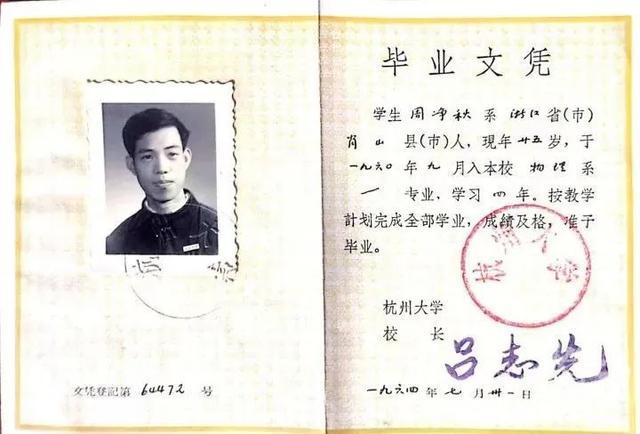 文凭登記第 64472 号
毕业文凭
学生 周净秋 系 浙江 省(市)
肖山 县(市)人，現年 廿五 岁，于
一九六〇 年 九 月入本校 物理 系
专业，学习 四 年。按教学
計划完成全部学业，成績及格，准予
毕业。
杭州大学
杭州大学
校长 吕志先
一九六四 年 七 月 卅一 日